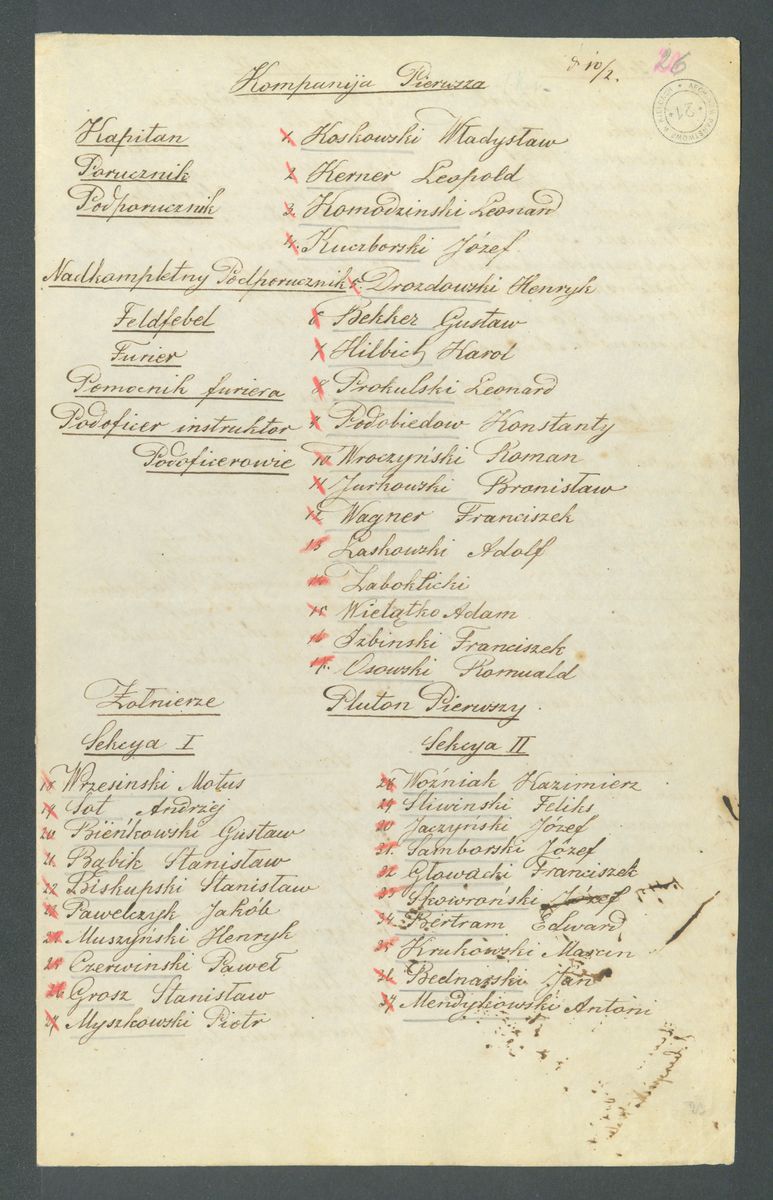 26
d 10/2.
Kompanija Pierwsza
Kapitan 1. Koskowski Władysław
Porucznik 2 Kerner Leopold
Podporucznik 3. Komodzinski Leonard
4. Kuczborski Józef
Nadkompletny Podporucznik 5. Drozdowski Henryk
Feldfebel 6 Bekker Gustaw
Furier 7 Hilbich Karol
Pomocnik furiera 8 Prokulski Leonard
Podoficer instruktor 9 Podobiedow Konstanty
Podoficerowie 10 Wroczyński Roman
11 Jurkowski Bronisław
12 Wagner Franciszek
13 Laskowski Adolf
14 Zabokłicki
15 Wielątko Adam
16 Izbinski Franciszek
17. Osowski Romuald
Żołnierze Pluton Pierwszy.
Sekcya I
18 Wrzesinski Motus
19 Sot Andrzej
20 Bieńkowski Gustaw
21. Bąbik Stanisław
22 Biskupski Stanisław
23 Pawelczyk Jakób
24 Muszyński Henryk
25 Czerwinski Paweł
26 Grosz Stanisław
27 Myszkowski Piotr
Sekcya II
28 Woźniak Kazimierz
29 Sliwinski Feliks
30 Jaczyński Józef
31. Samborski Józef
32 Głowacki Franciszek
33 Skowroński Józef
34 Bertram Edward
35 Krukowski Marcin
36 Bednarski Jan
37 Mendykowski Antoni